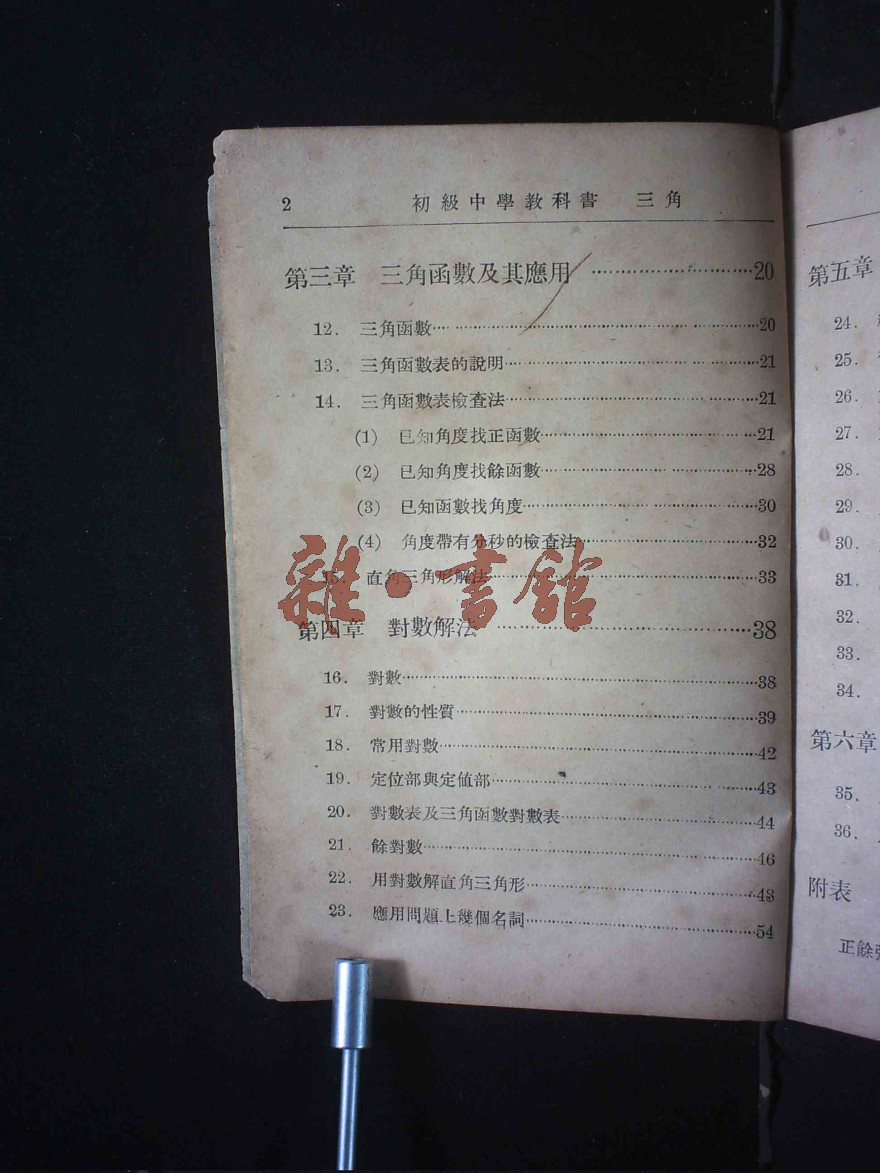 2 初級中學教科書 三角
第三章 三角函數及其應用 ……………………20
12. 三角函數……………………20
13. 三角函數表的說明……………………21
14. 三角函數表檢查法……………………21
(1) 已知角度找正函數……………………21
(2) 已知角度找餘函數……………………28
(3) 已知函數找角度……………………30
(4) 角度帶有分秒的檢查法……………………32
15. 直角三角形解法……………………33
雜·書館
第四章 對數解法 ……………………38
16. 對數……………………38
17. 對數的性質……………………39
18. 常用對數……………………42
19. 定位部與定值部……………………43
20. 對數表及三角函數對數表……………………44
21. 餘對數……………………46
22. 用對數解直角三角形……………………48
23. 應用問題上幾個名詞……………………54
第五章
24.
25.
26.
27.
28.
29.
30.
31.
32.
33.
34.
第六章
35.
36.
附表
正餘